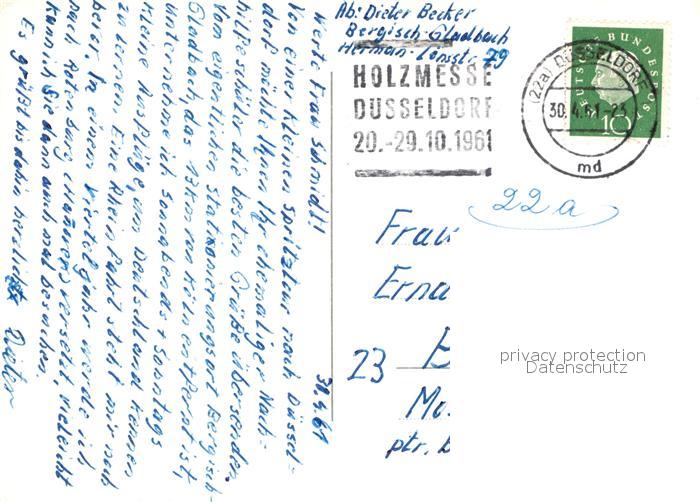 30.4.61
Werte Frau Schmidt!
Von einer kleinen Spritztour nach Düssel-
dorf möchte Ihnen Ihr ehemaliger Nach-
hilfeschüler die besten Grüße übersenden.
Vom eigentlichen Stationierungsort Bergisch-
Gladbach, das 17km von Köln entfernt ist,
unternehme ich sonnabends + sonntags
kleine Ausflüge, um Deutschland kennen
zu lernen. Eine Rheinfahrt steht mir noch
bevor. In einem Vierteljahr werde ich
nach versetzt, vielleicht
kann ich Sie dann auch mal besuchen.
Es grüßt bis dahin herzlichst Dieter
Ab: Dieter Becker
Bergisch-Gladbach
Herman-Lönsstr. 79
HOLZMESSE
DÜSSELDORF
20.-29.10.1961
(22a) DÜSSELDORF
30.4.61-23
md
DEUTSCHE BUNDESPOST
10
22a
Frau
Erna
23
privacy protection
Datenschutz